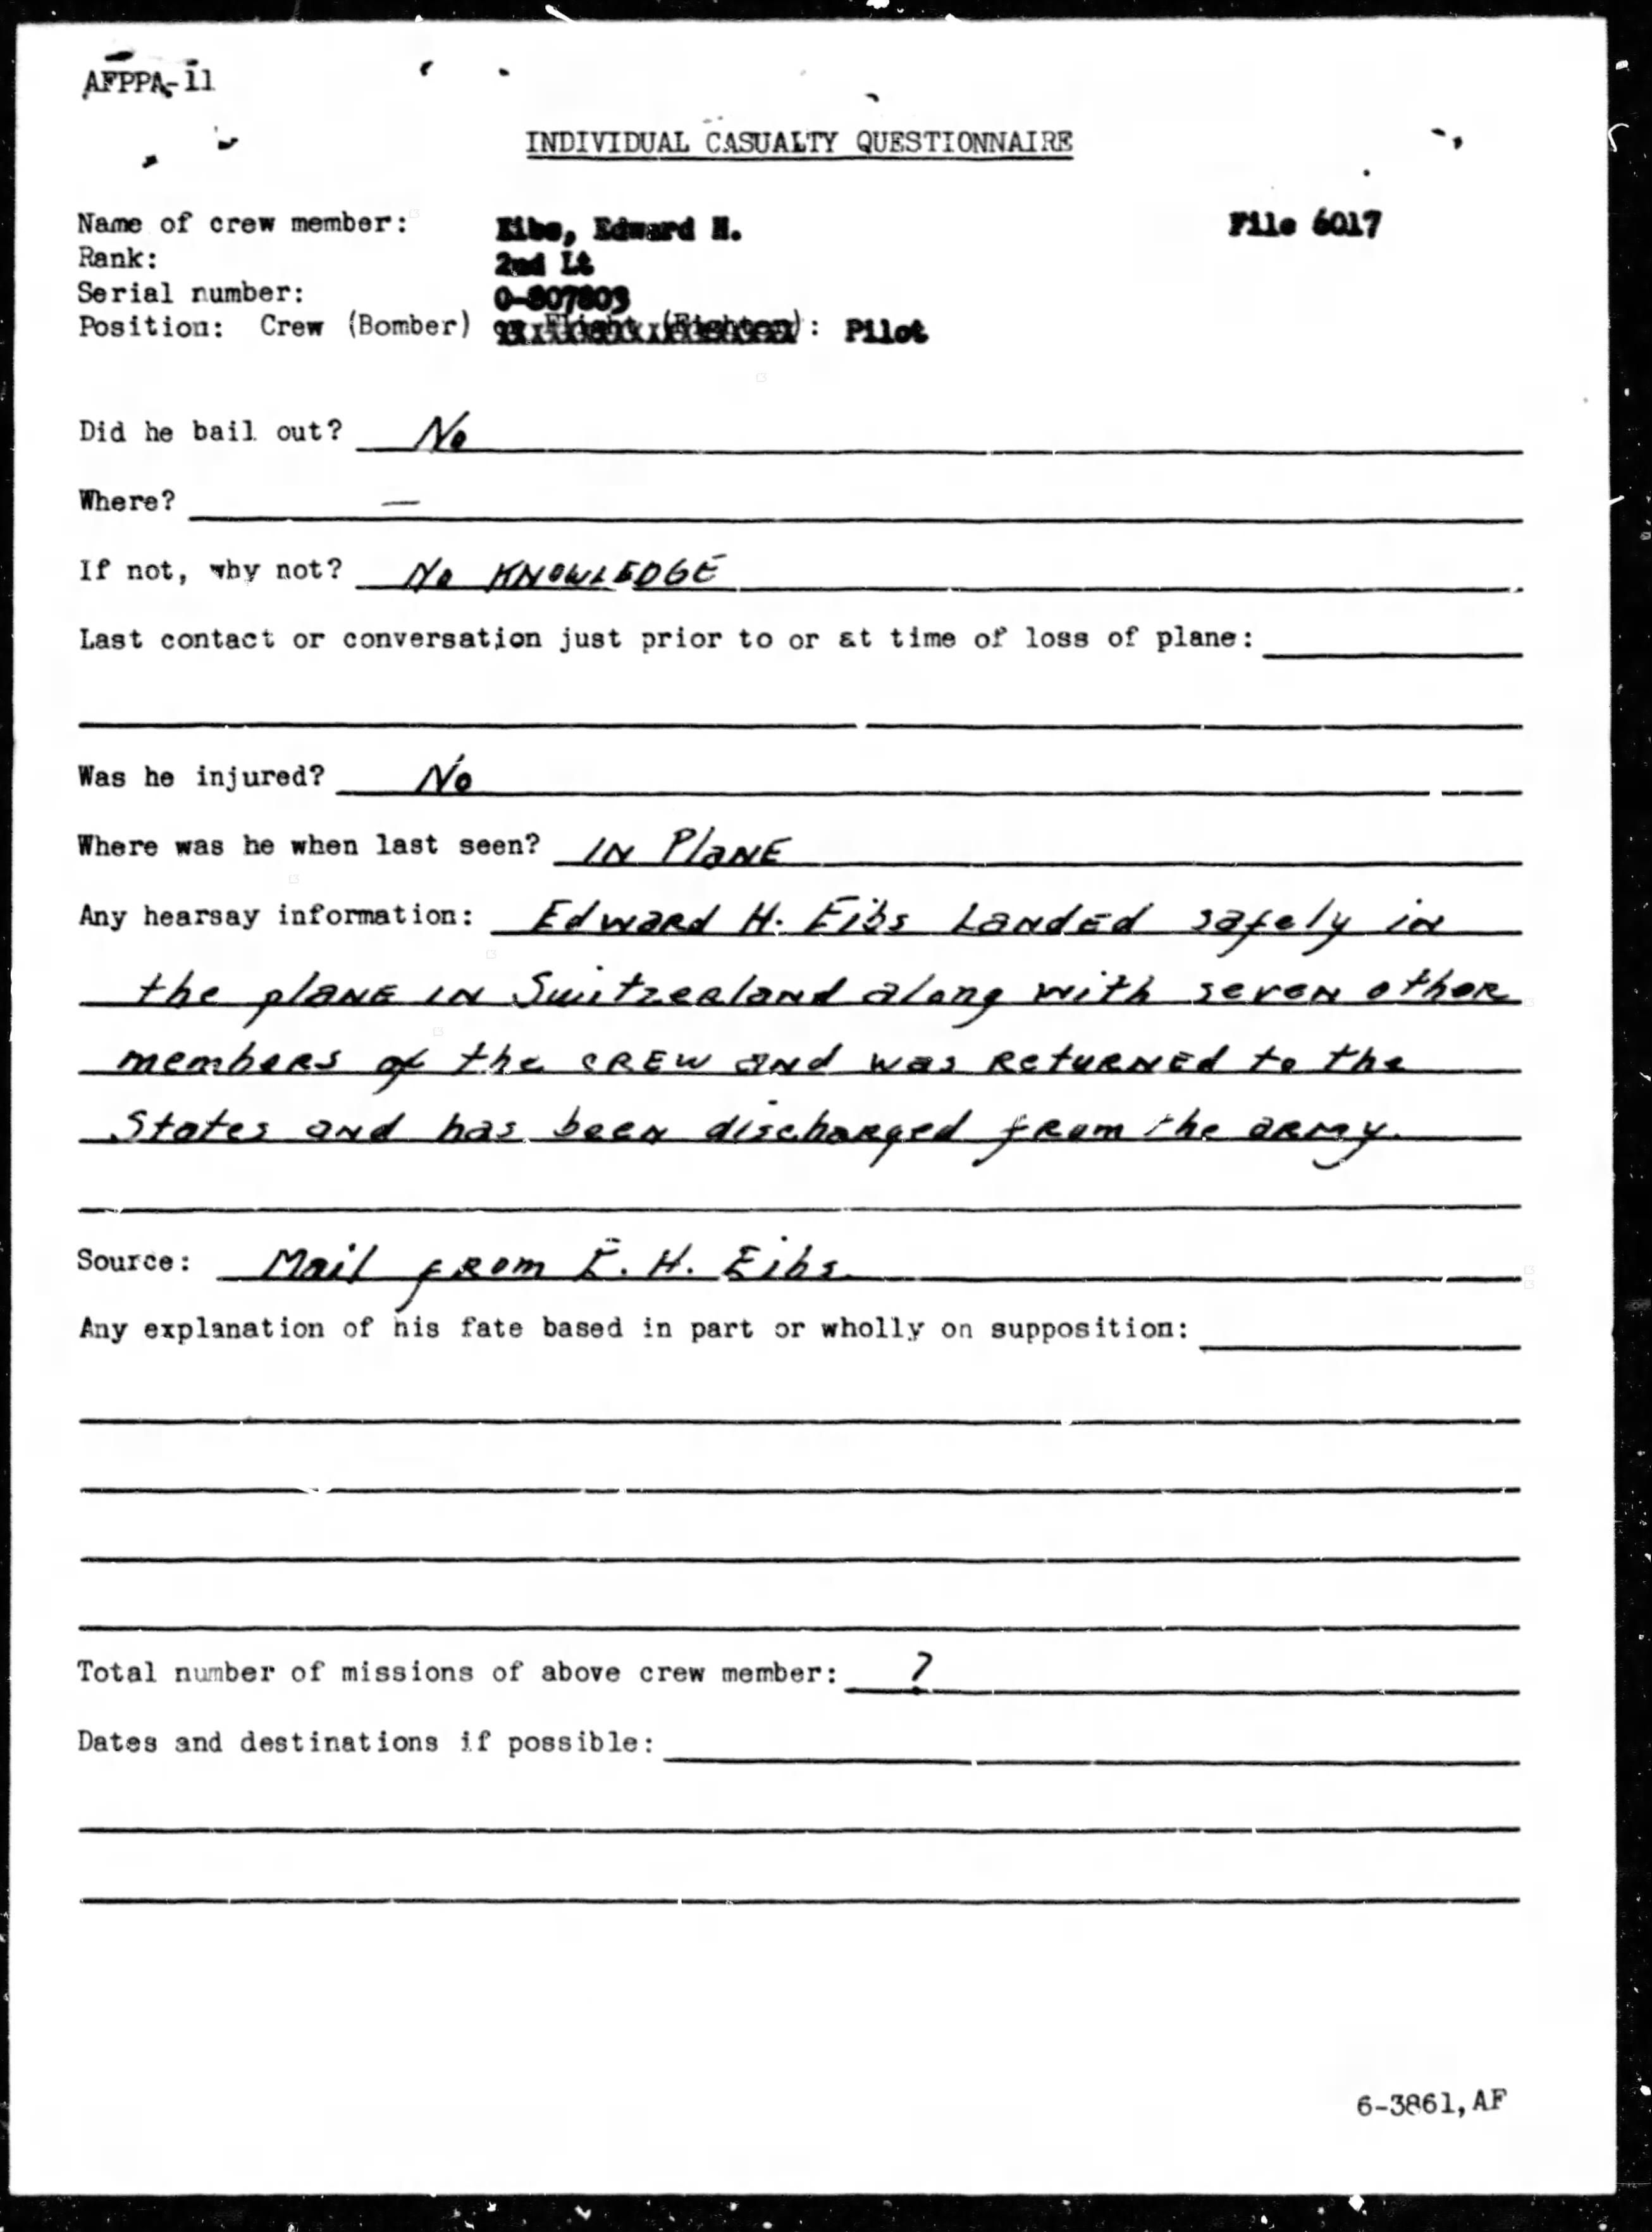 AFPPA-11
INDIVIDUAL CASUALTY QUESTIONNAIRE
Name of crew member: Eibs, Edward H. File 6017
Rank: 2nd Lt
Serial number: 0-807803
Position: Crew (Bomber) or Flight (Fighter): Pilot
Did he bail out? No
Where? —
If not, why not? No KNOWLEDGE
Last contact or conversation just prior to or at time of loss of plane:
Was he injured? No
Where was he when last seen? IN PlaNE
Any hearsay information: Edward H. Eibs Landed safely in
the plane in Switzerland along with seven other
members of the crew and was returned to the
States and has been discharged from the army.
Source: Mail from E. H. Eibs.
Any explanation of his fate based in part or wholly on supposition:
Total number of missions of above crew member: ?
Dates and destinations if possible:
6-3861, AF